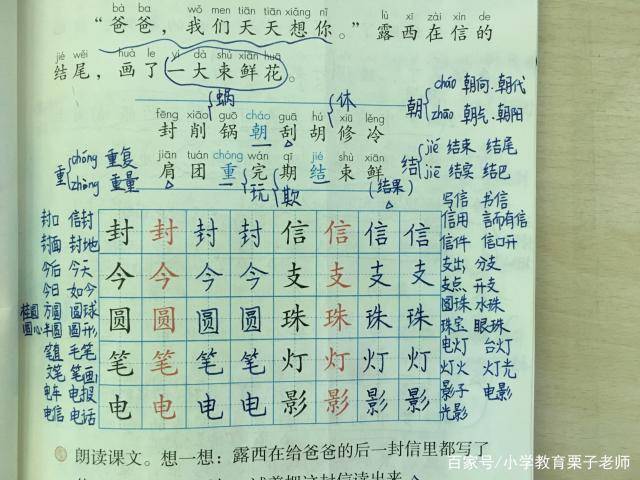 bà ba wǒ men tiān tiān xiǎng nǐ lù xī zài xìn de
“爸爸，我们天天想你。”露西在信的
jié wěi huà le yí dà shù xiān huā
结尾，画了一大束鲜花。
蜗 休
朝 cháo 朝向、朝代
zhāo 朝气、朝阳
fēng xiāo guō cháo guā hú xiū lěng
封 削 锅 朝 刮 胡 修 冷
重 chóng 重复
zhòng 重量
结 jié 结束 结尾
jiē 结实 结巴
jiān tuán chóng wán qī jié shù xiān
肩 团 重 完 期 结 束 鲜
玩 欺 (结果)
封口 信封
封面 封地
封 封 封 封 信 信 信 信
写信 书信
信用 言而有信
信件 信口开
今后 今天
今日 如今
今 今 今 今 支 支 支 支
支出 分支
支点 开支
桂圆 方圆 圆球
圆心 半圆 圆形
圆 圆 圆 圆 珠 珠 珠 珠
圆珠 水珠
珠宝 眼珠
笔直 毛笔
文笔 笔画
笔 笔 笔 笔 灯 灯 灯 灯
电灯 台灯
灯火 灯光
电车 电报
电信 电话
电 电 电 电 影 影 影 影
影子 电影
光影
朗读课文。想一想：露西在给爸爸的后一封信里都写了
百家号/小学教育栗子老师